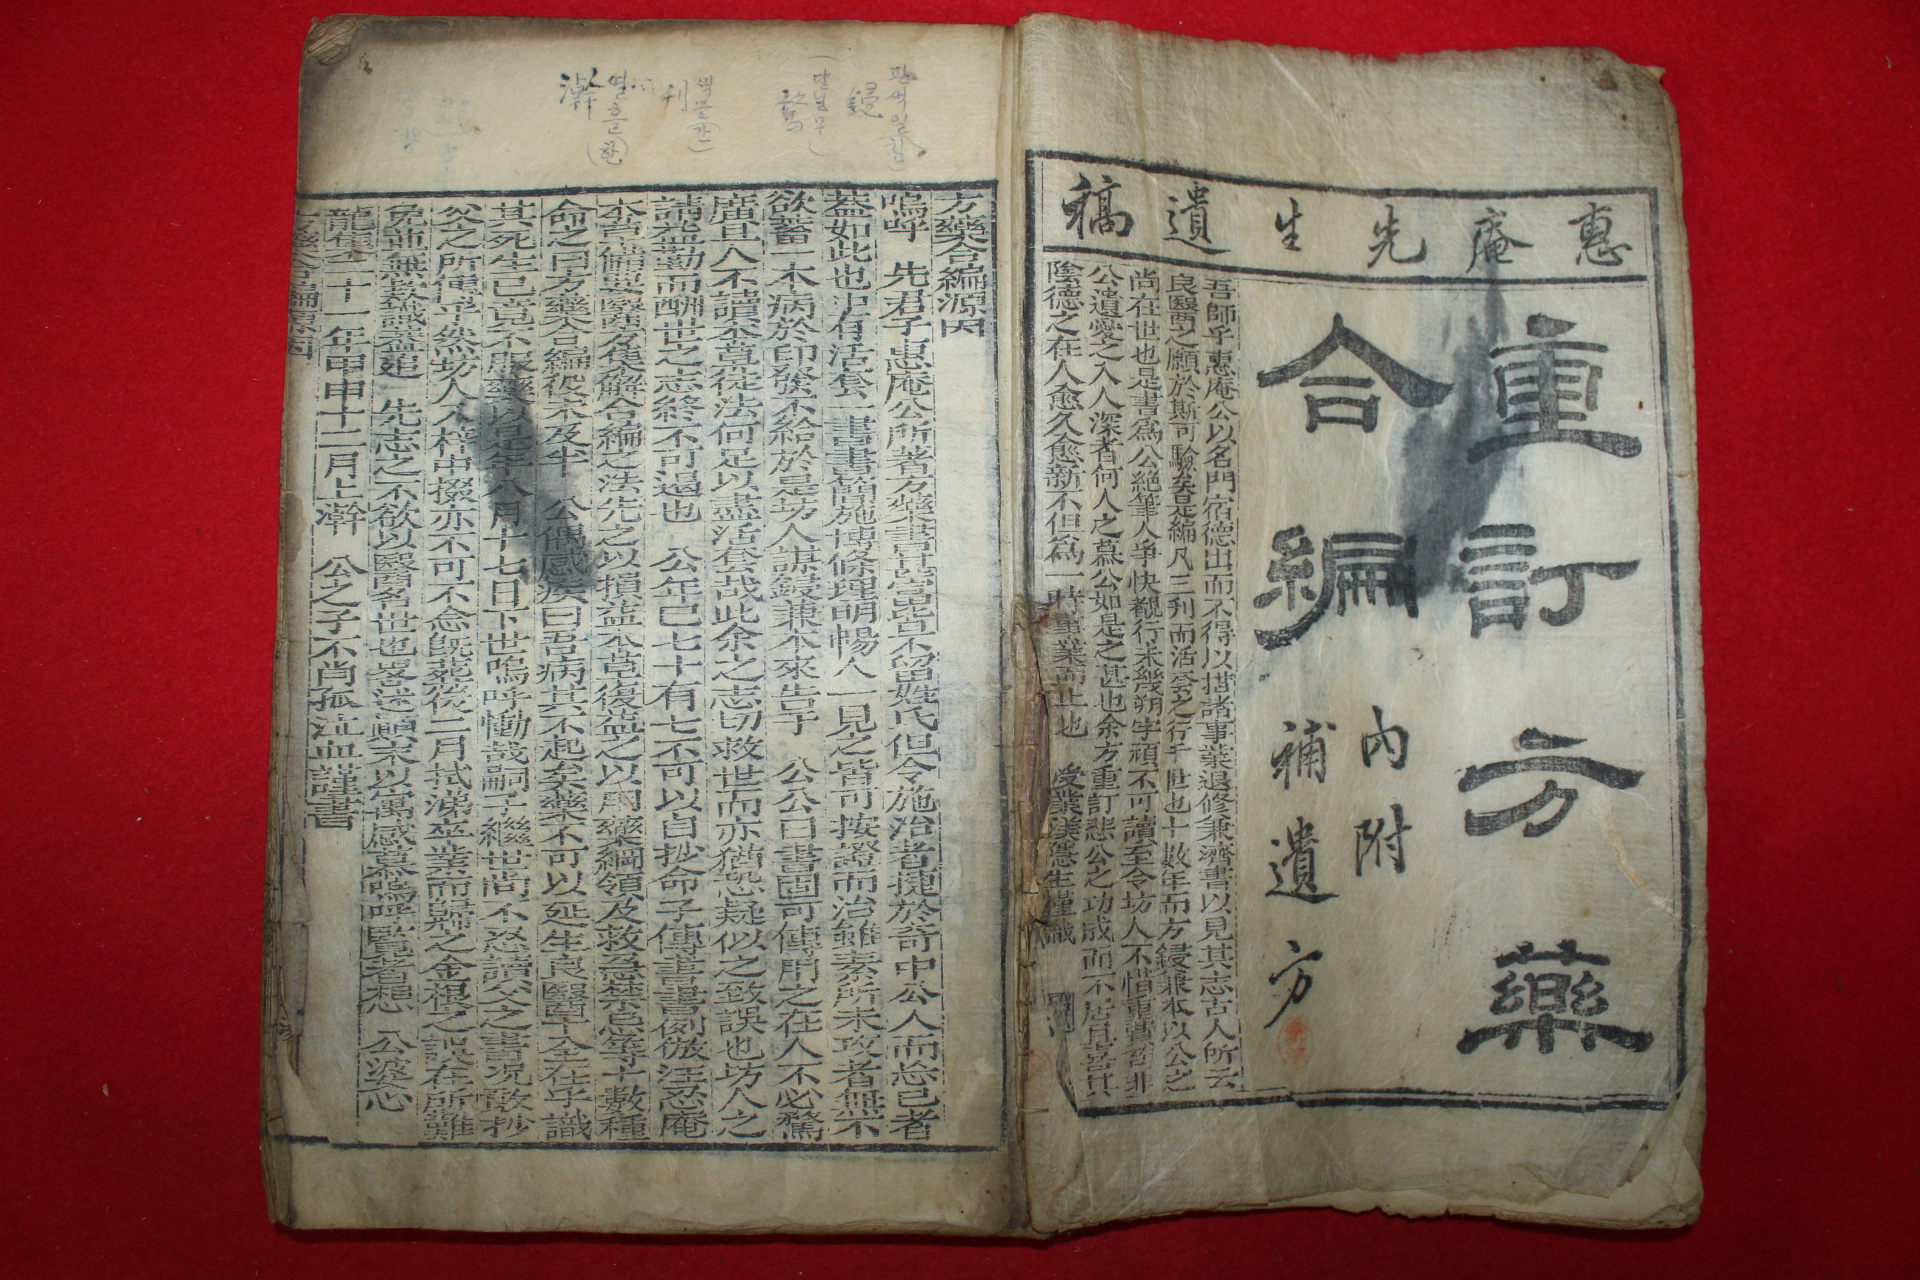 惠庵先生遺稿
重訂方藥
合編
內附
補遺方
吾師乎惠庵公以名門宿德出而不得以措諸事業退修兼濟書以見其志古人所云
良醫之願於斯可驗矣是編凡三刊而活套之行于世也十數年而方鋟兼本以公之
尚在世也是書爲公絶筆人爭快覩行未幾朔字頑不可讀至令坊人不惜重費吾非
公遺愛之入人深者何人之慕公如是之甚也余方重訂悲公之功成而不居且喜其
陰德之在人愈久愈新不但爲一時事業而止也 受業漢隱生謹識
方藥合編源因
嗚呼 先君子惠庵公所著方藥書其當毘旦不留姓氏但令施治者捷於奇中公人而忘己者
蓋如此也中有活套一書書簡施博條理明暢人一見之皆可按證而治雖素所未攻者無不
欲蓄一本病於印發不給於是坊人謀鋟兼本來告于 公公曰書固可傳用之在人不必騖
廣且人不讀本草徒法何足以盡活套哉此余之志切救世而亦猶恐疑似之致誤也坊人之
請益勤而酬世之志終不可遏也 公年已七十有七不可以自抄命子傳書書例倣汪忍庵
本草備要醫方集解合編之法先之以損益本草後益之以用藥綱領及救急禁忌等十數種
命之曰方藥合編役未及半 公偶感疾曰吾病其不起矣藥不可以延生良醫十全在乎識
其死生已竟不服藥以是年八月十七日下世嗚呼慟哉嗣子繼世尚不忍讀父之書况敢抄
父之所傳乎然坊人入梓中掇亦不可不念旣葬後二月拭淚坐業而歸之金根之誤在所難
免而無敎識益追 先志之不欲以醫名世也爰述顚末以寓感慕嗚呼覽者想 公婆心
龍集二十一年甲申十二月上澣 公之子不肖孤泣血謹書
方藥合編源因
판색일침
鋟
달릴무
騖
색믈간
刊
열흘한
澣